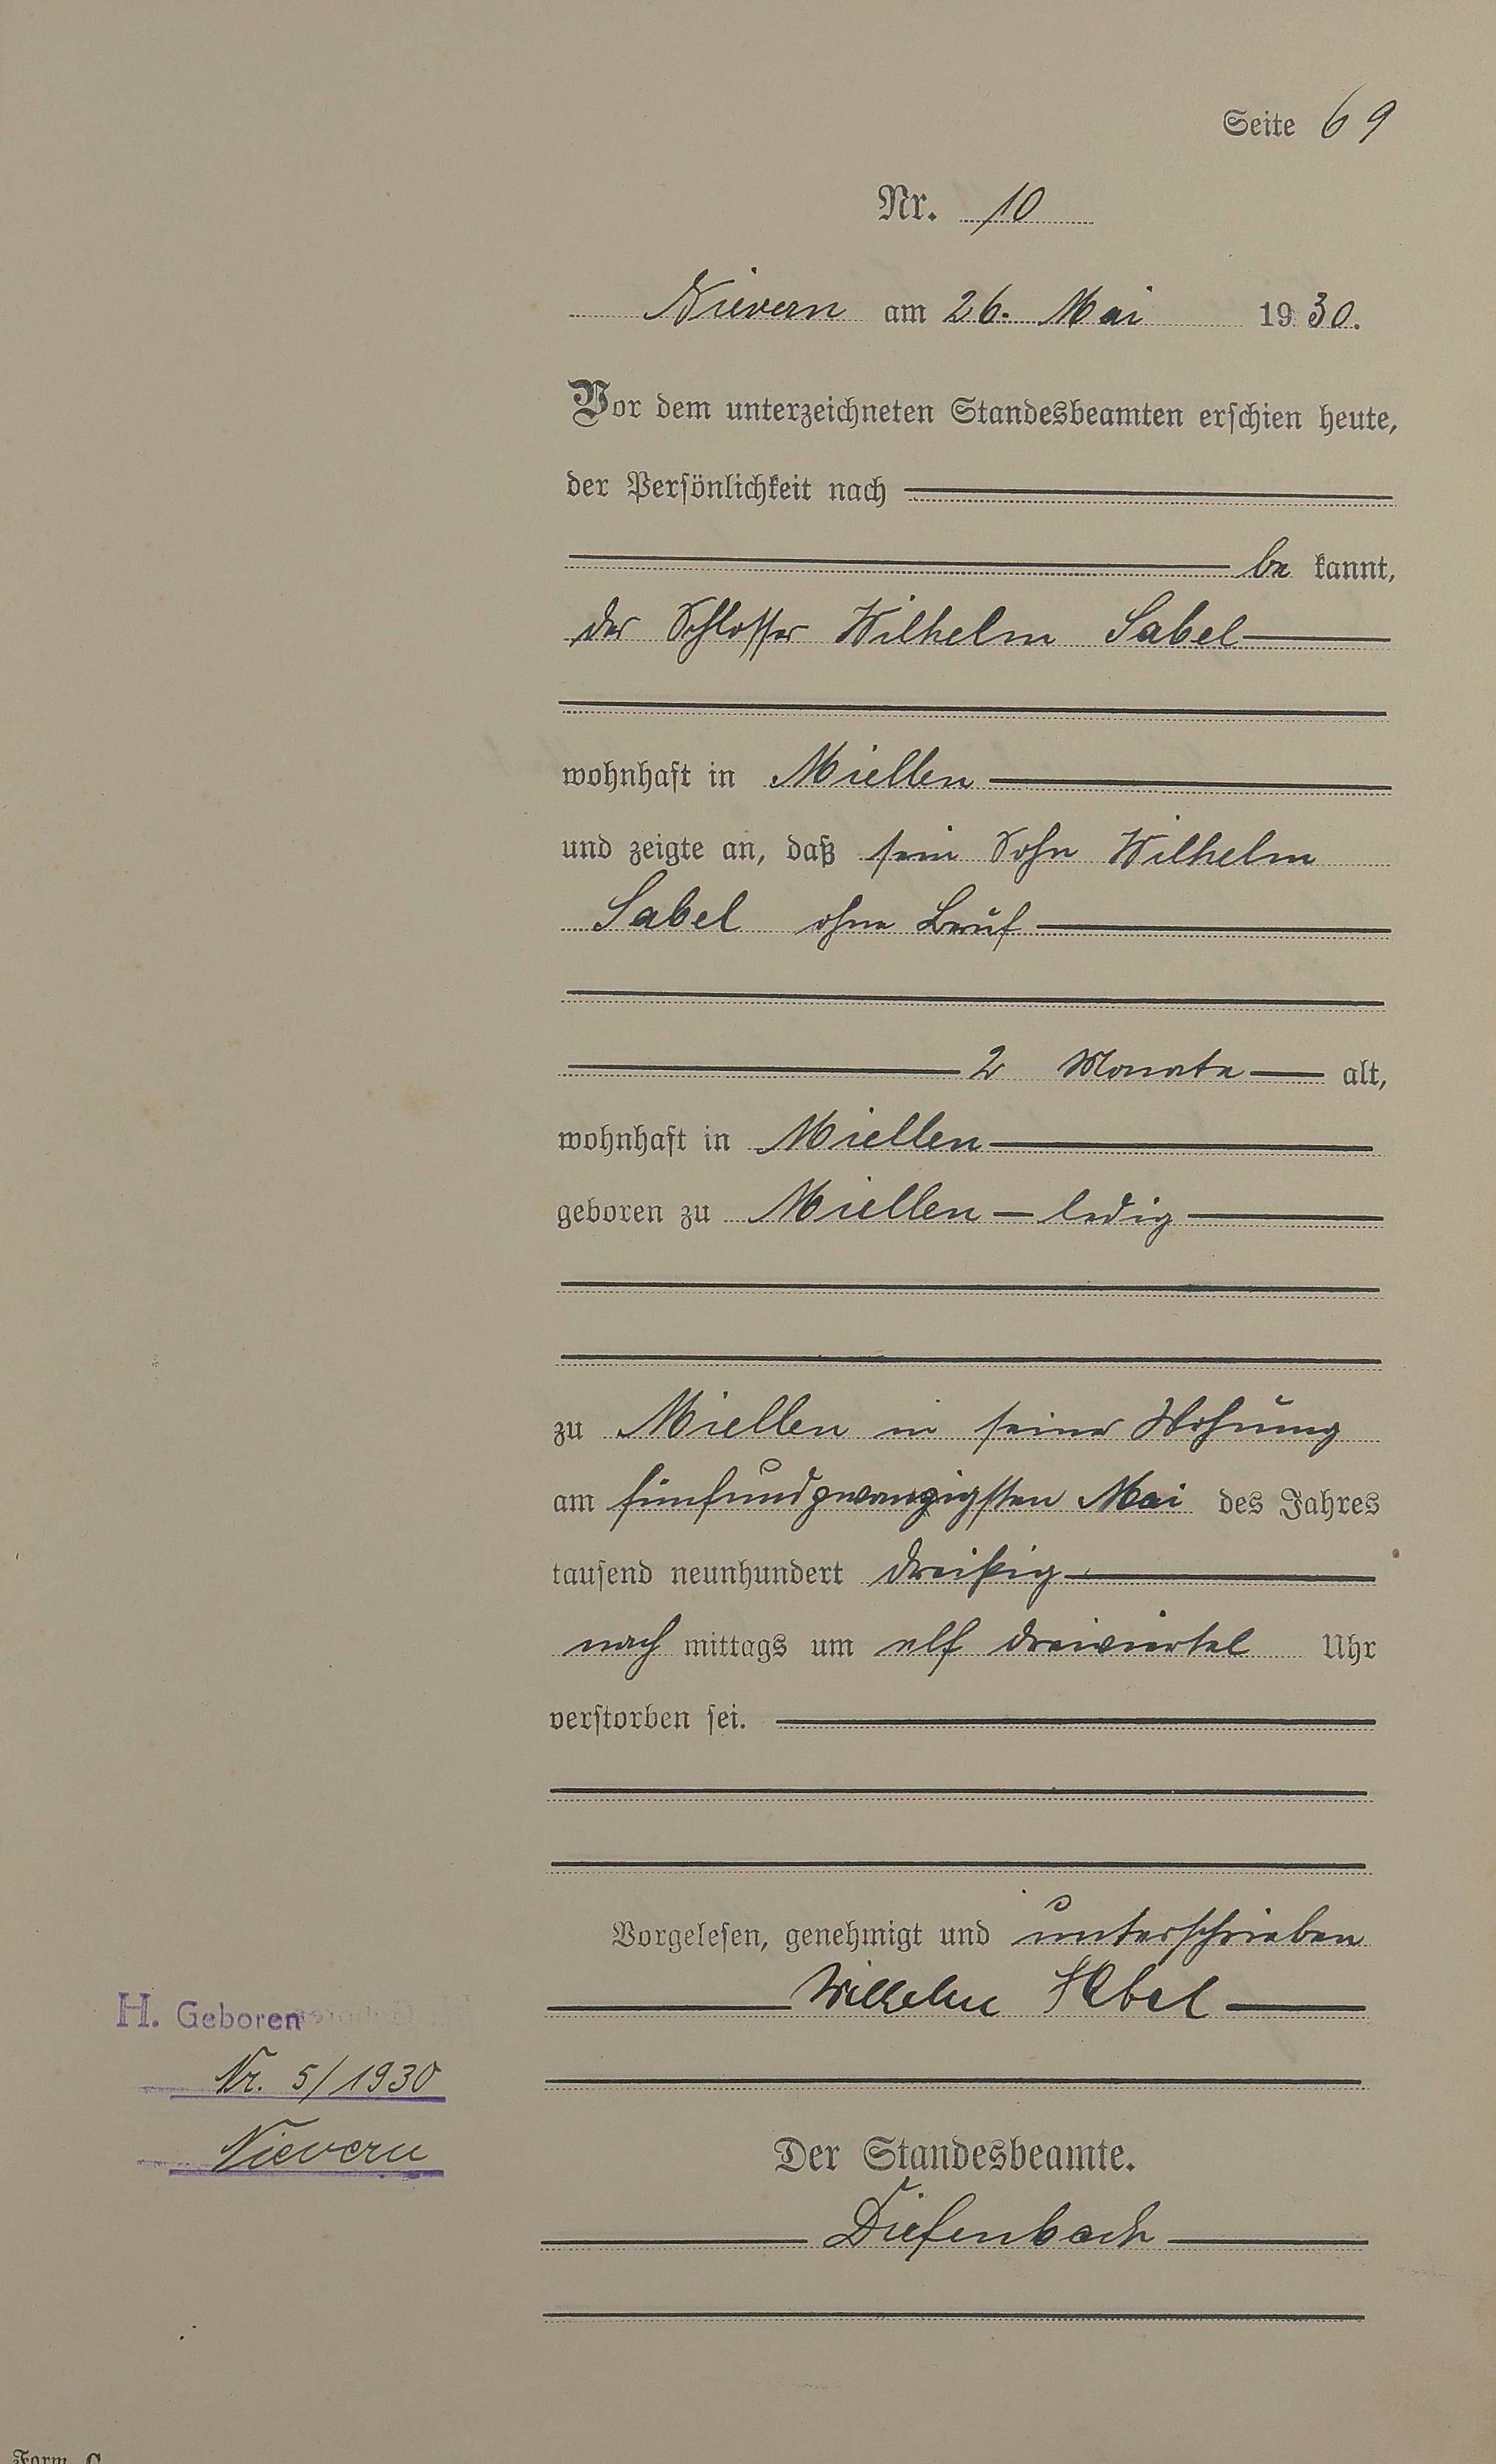 Seite 69
Nr. 10
Nievern am 26. Mai 1930.
Vor dem unterzeichneten Standesbeamten erschien heute,
der Persönlichkeit nach
be kannt,
der Schlosser Wilhelm Sabel
wohnhaft in Miellen
und zeigte an, daß sein Sohn Wilhelm
Sabel ohne Beruf
2 Monate alt,
wohnhaft in Miellen
geboren zu Miellen - ledig
zu Miellen in seiner Wohnung
am fünfundzwanzigsten Mai des Jahres
tausend neunhundert dreißig
nach mittags um elf dreiviertel Uhr
verstorben sei.
Vorgelesen, genehmigt und unterschrieben
Wilhelm Sabel
H. Geboren
Nr. 5/1930
Nievern
Der Standesbeamte.
Diefenbach
Form. C